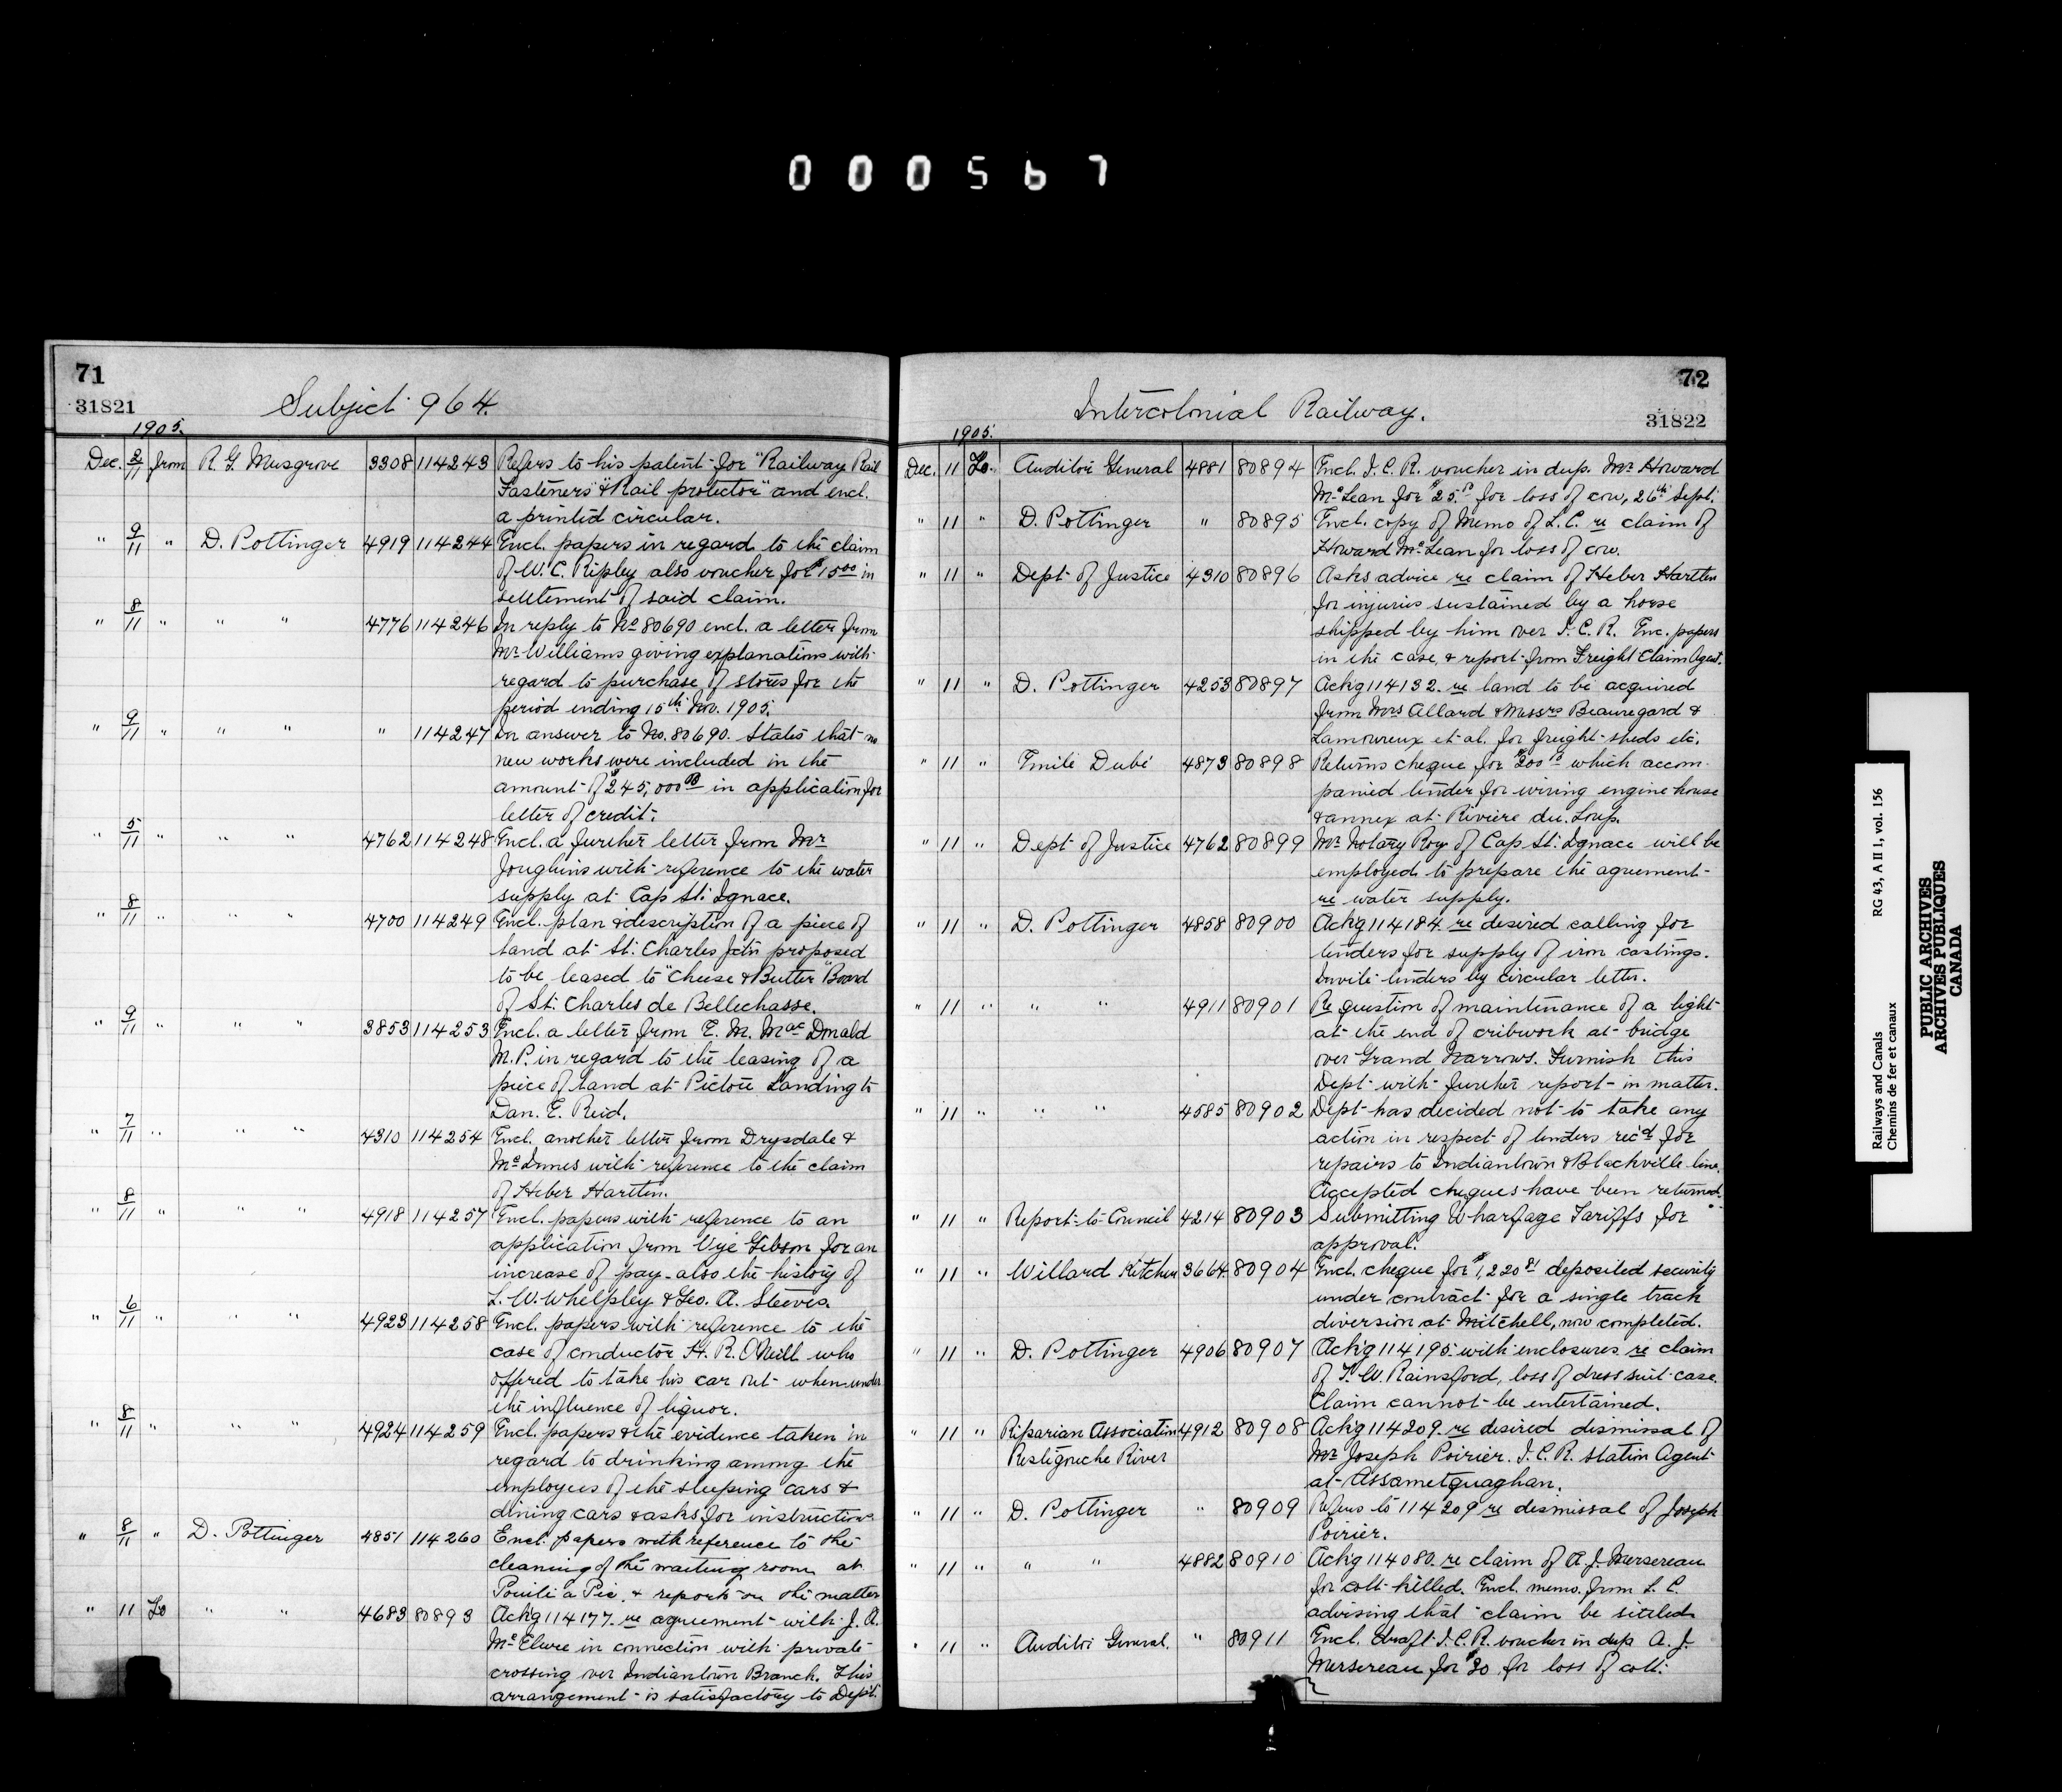 000567
71
31821
Subject 964.
1905.
Dec. 2/11 from R. G. Musgrove 3308 114243 Refers to his patent for "Railway Rail
Fasteners" & "Rail protector" and encl.
a printed circular.
" 9/11 " D. Pottinger 4919 114244 Encl. papers in regard to the claim
of W. C. Ripley also voucher for $15.00 in
settlement of said claim.
" 8/11 " " " 4776 114246 In reply to No 80690 encl. a letter from
Mr Williams giving explanations with
regard to purchase of stores for the
period ending 15th Nov. 1905.
" 9/11 " " " " 114247 In answer to No. 80690. States that no
new works were included in the
amount of $245,000.00 in application for
letter of credit.
" 5/11 " " " 4762 114248 Encl. a further letter from Mr
Joughins with reference to the water
supply at Cap St. Ignace.
" 8/11 " " " 4700 114249 Encl. plan & description of a piece of
land at St. Charles Jctn proposed
to be leased to "Cheese & Butter" Board
of St. Charles de Bellechasse.
" 9/11 " " " 3853 114253 Encl. a letter from E. M. MacDonald
M.P. in regard to the leasing of a
piece of land at Pictou Landing to
Dan. E. Reid.
" 7/11 " " " 4310 114254 Encl. another letter from Drysdale &
McInnes with reference to the claim
of Heber Hartlen.
" 8/11 " " " 4918 114257 Encl. papers with reference to an
application from Vye Gibson for an
increase of pay - also the history of
L. W. Whelpley & Geo. A. Steeves.
" 6/11 " " " 4923 114258 Encl. papers with reference to the
case of conductor H. R. O'Neill who
offered to take his car out when under
the influence of liquor.
" 8/11 " " " 4924 114259 Encl. papers & the evidence taken in
regard to drinking among the
employees of the sleeping cars &
dining cars & asks for instructions
" 8/11 " D. Pottinger 4851 114260 Encl. papers with reference to the
cleaning of the waiting room at
Pointe à Pic, & reports on the matter
" 11 To " " 4683 80893 Ackg 114177. re agreement with J. A.
McElwee in connection with private
crossing over Indiantown Branch. This
arrangement is satisfactory to Dept.
72
31822
Intercolonial Railway.
1905.
Dec. 11 To. Auditor General 4881 80894 Encl. I. C. R. voucher in dup. Mr Howard
McLean for $25.00 for loss of cow, 26th Sept.
" 11 " D. Pottinger " 80895 Encl. copy of Memo of L.C. re claim of
Howard McLean for loss of cow.
" 11 " Dept of Justice 4310 80896 Asks advice re claim of Heber Hartlen
for injuries sustained by a horse
shipped by him over I. C. R. Enc. papers
in the case, & report from Freight Claim Agent.
" 11 " D. Pottinger 4253 80897 Ackg 114132. re land to be acquired
from Mrs Allard & Messrs Beauregard &
Lamoureux et al. for freight sheds etc.
" 11 " Emile Dubé 4873 80898 Returns cheque for $200.00 which accom-
panied tender for wiring engine house
& annex at Riviere du Loup.
" 11 " Dept of Justice 4762 80899 Mr Notary Roy of Cap St. Ignace will be
employed to prepare the agreement
re water supply.
" 11 " D. Pottinger 4858 80900 Ackg 114184. re desired calling for
tenders for supply of iron castings.
Invite tenders by circular letter.
" 11 " " " 4911 80901 Re question of maintenance of a light
at the end of cribwork at bridge
over Grand Narrows. Furnish this
Dept with further report in matter.
" 11 " " " 4585 80902 Dept has decided not to take any
action in respect of tenders rec'd for
repairs to Indiantown & Blackville line.
Accepted cheques have been returned.
" 11 " Report to Council 4214 80903 Submitting Wharfage Tariffs for
approval.
" 11 " Willard Kitchen 3664 80904 Encl. cheque for $1,220.81 deposited security
under contract for a single track
diversion at Mitchell, now completed.
" 11 " D. Pottinger 4906 80907 Ackg 114195 with enclosures re claim
of T. W. Rainsford, loss of dress suit case.
Claim cannot be entertained.
" 11 " Riparian Association 4912 80908 Ackg 114209. re desired dismissal of
Restigouche River Mr Joseph Poirier. I. C. R. Station Agent
at Assametquaghan.
" 11 " D. Pottinger " 80909 Refers to 114209 re dismissal of Joseph
Poirier.
" 11 " " " 4882 80910 Ackg 114080. re claim of A. J. Mersereau
for colt killed. Encl. memo. from L. C.
advising that claim be settled
" 11 " Auditor General. " 80911 Encl. draft I. C. R. voucher in dup A. J.
Mersereau for $30 for loss of colt.
Railways and Canals
Chemins de fer et canaux
RG 43, A II 1, vol. 156
PUBLIC ARCHIVES
ARCHIVES PUBLIQUES
CANADA